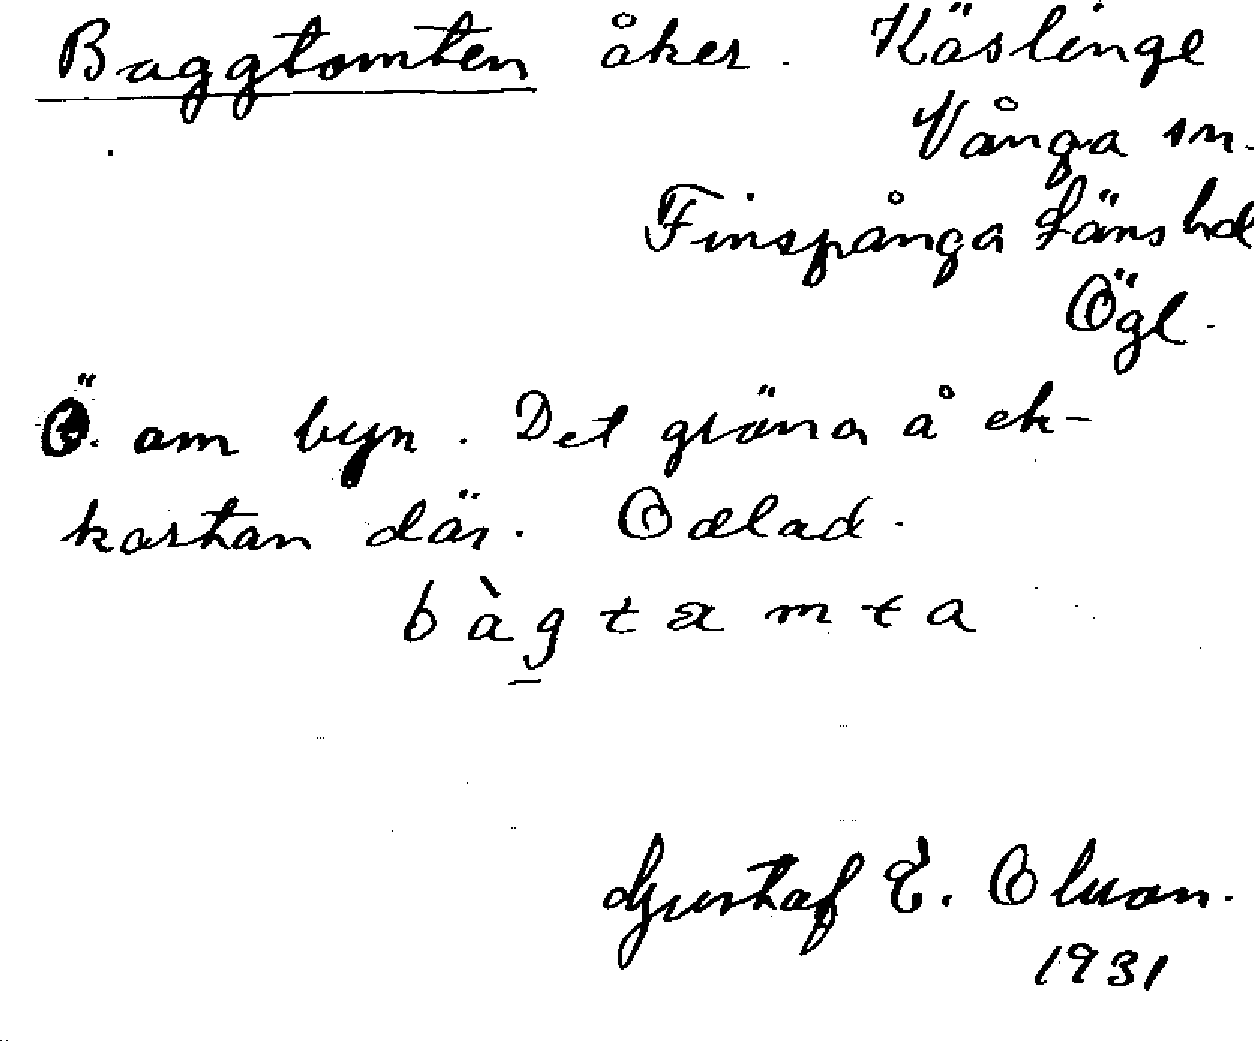 Baggtomten åker. Käslinge
Vånga sn.
Finspånga Länshd
Ögl.
Ö. om byn. Det gröna å ek-
kastan där. Oälad.
bàgtamta
Gustaf E. Olson.
1931